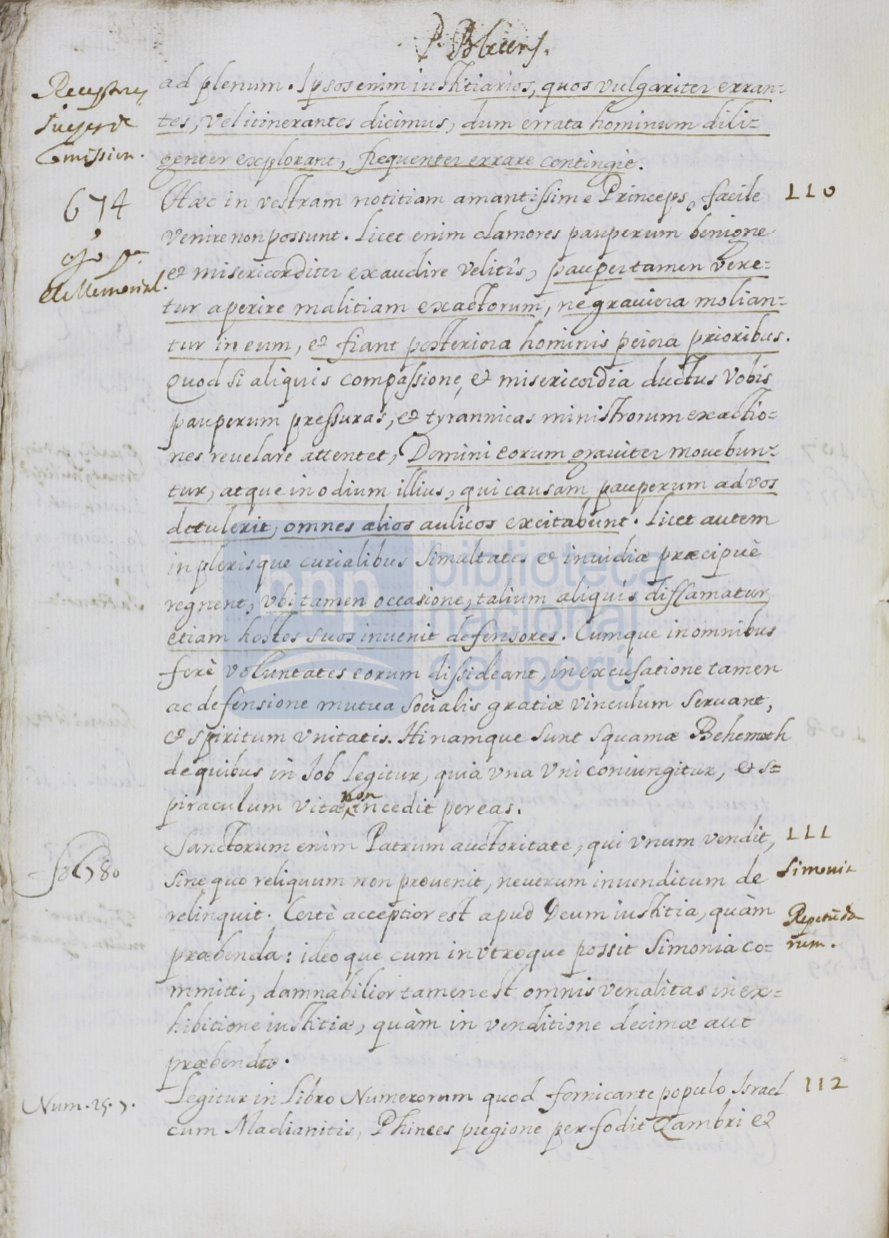 P. Blesens.
ad plenum. Ipsos enim iustitiarios, quos vulgariter erran-
tes, vel itinerantes dicimus, dum errata hominum dili-
genter explorant, frequenter errare contingit.
Receptores
Jueces de
Comission.
674
Hæc in vestram notitiam amantissime Princeps, facile
110
venire non possunt. licet enim clamores pauperum benigne
& misericorditer exaudire velitis, pauper tamen vere-
del Memorial.
tur aperire malitiam exactorum, ne graviora molian-
tur in eum, & fiant posteriora hominis peiora prioribus.
Quod si aliquis compassione, & misericordia ductus vobis
pauperum pressuras, & tyrannicas ministrorum exactio-
nes revelare attentet, Domini eorum graviter mouebun-
tur, atque in odium illius, qui causam pauperum ad vos
detulerit, omnes alios aulicos excitabunt. licet autem
in plerisque curialibus simultates & inuidiæ præcipuè
regnent, vbi tamen occasione, talium aliquis diffamatur
etiam hostes suos invenit defensores. Cumque in omnibus
ferè voluntates eorum dissideant, in excusatione tamen
ac defensione mutua socialis gratiæ vinculum seruant,
& spiritum vnitatis. Hi namque sunt squamæ Behemoth
de quibus in Job legitur, quia vna vni coniungitur, & s-
piraculum vitæ non incedit per eas.
Sanctorum enim Patrum auctoritate, qui vnum vendit,
111
sine quo reliquum non prouenit, neutrum inuenditum de
Simonia
relinquit. Certè acceptior est apud Deum iustitia, quàm
Repetũda
rum.
præbenda: ideoque cum in vtroque possit Simonia co-
mmitti, damnabilior tamen est omnis venalitas in ex-
hibitione iustitiæ, quàm in venditione decimæ aut
præbendæ.
Legitur in libro Numerorum quod fornicante populo Israel
112
Num. 25.
cum Madianitis, Phinees pugione perfodit Zambri &
bnp biblioteca
nacional
del perú